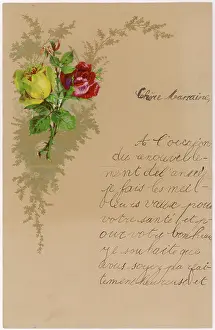 Chère Marraine,
A l'occasion
du renouvelle-
ment de l'année
je fais les meil-
leurs vœux pour
votre santé et p
our votre bonheur
je souhaite que
vous soyez parfai-
tement heureuse et